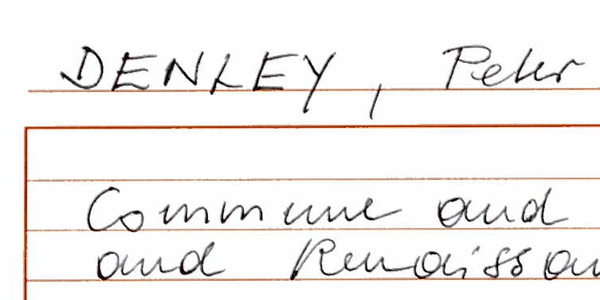 DENLEY, Peter
Commune and
and Renaissan